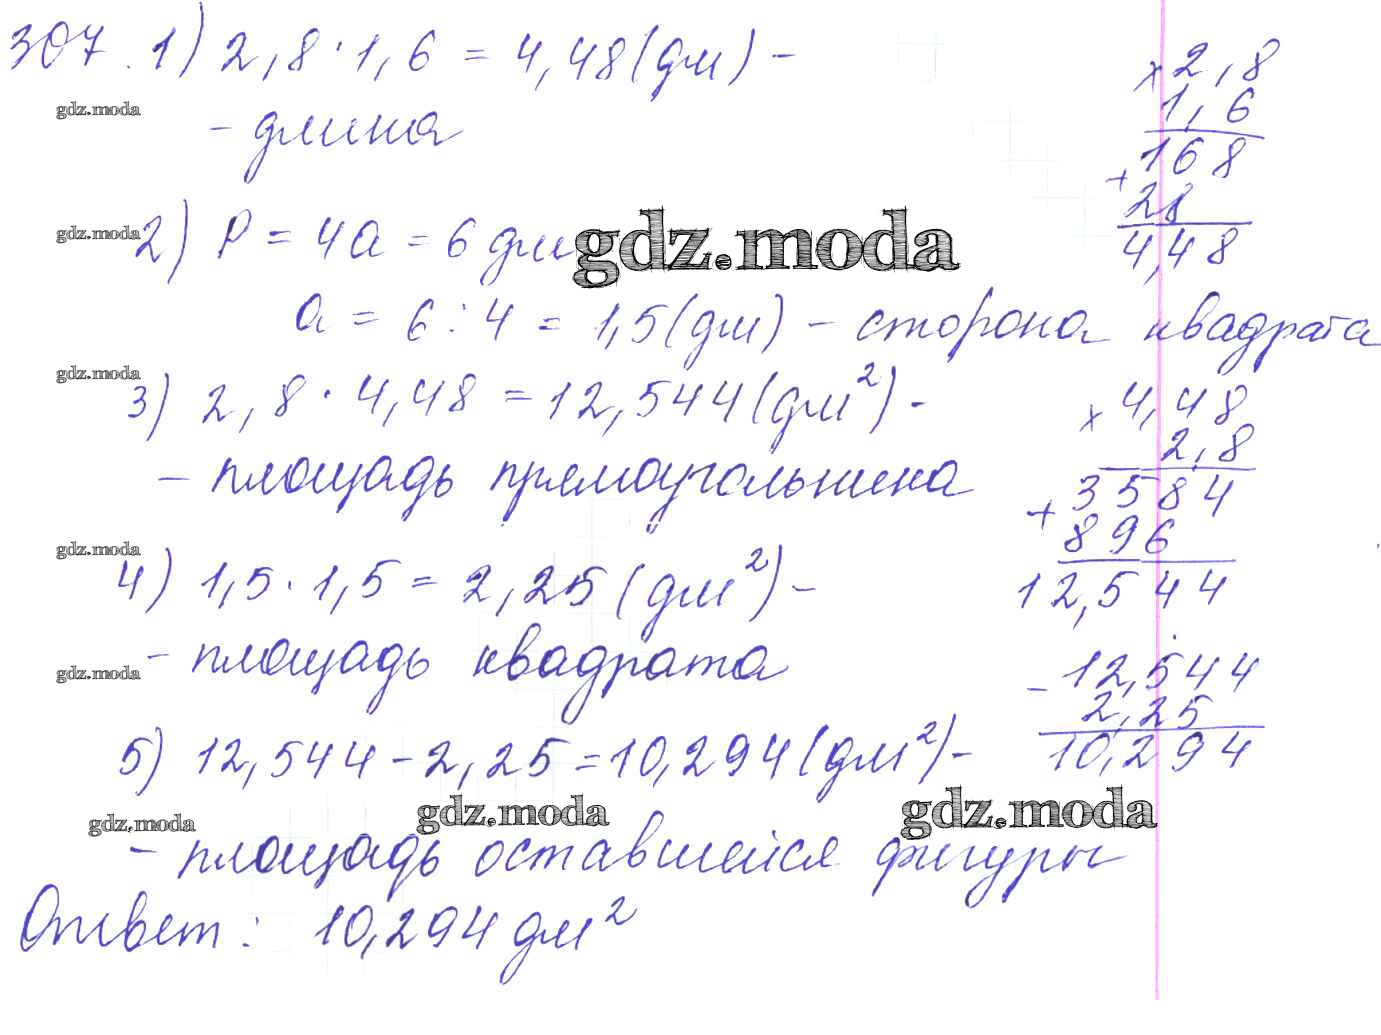 307. 1) 2,8 · 1,6 = 4,48 (дм) -
- длина
2) P = 4a = 6 дм
a = 6 : 4 = 1,5 (дм) - сторона квадрата
3) 2,8 · 4,48 = 12,544 (дм²) -
- площадь прямоугольника
4) 1,5 · 1,5 = 2,25 (дм²) -
- площадь квадрата
5) 12,544 - 2,25 = 10,294 (дм²) -
- площадь оставшейся фигуры
Ответ: 10,294 дм²
× 2,8
1,6
168
+
28
4,48
× 4,48
2,8
3584
+
896
12,544
- 12,544
2,25
10,294
gdz.moda
gdz.moda
gdz.moda
gdz.moda
gdz.moda
gdz.moda
gdz.moda
gdz.moda
gdz.moda